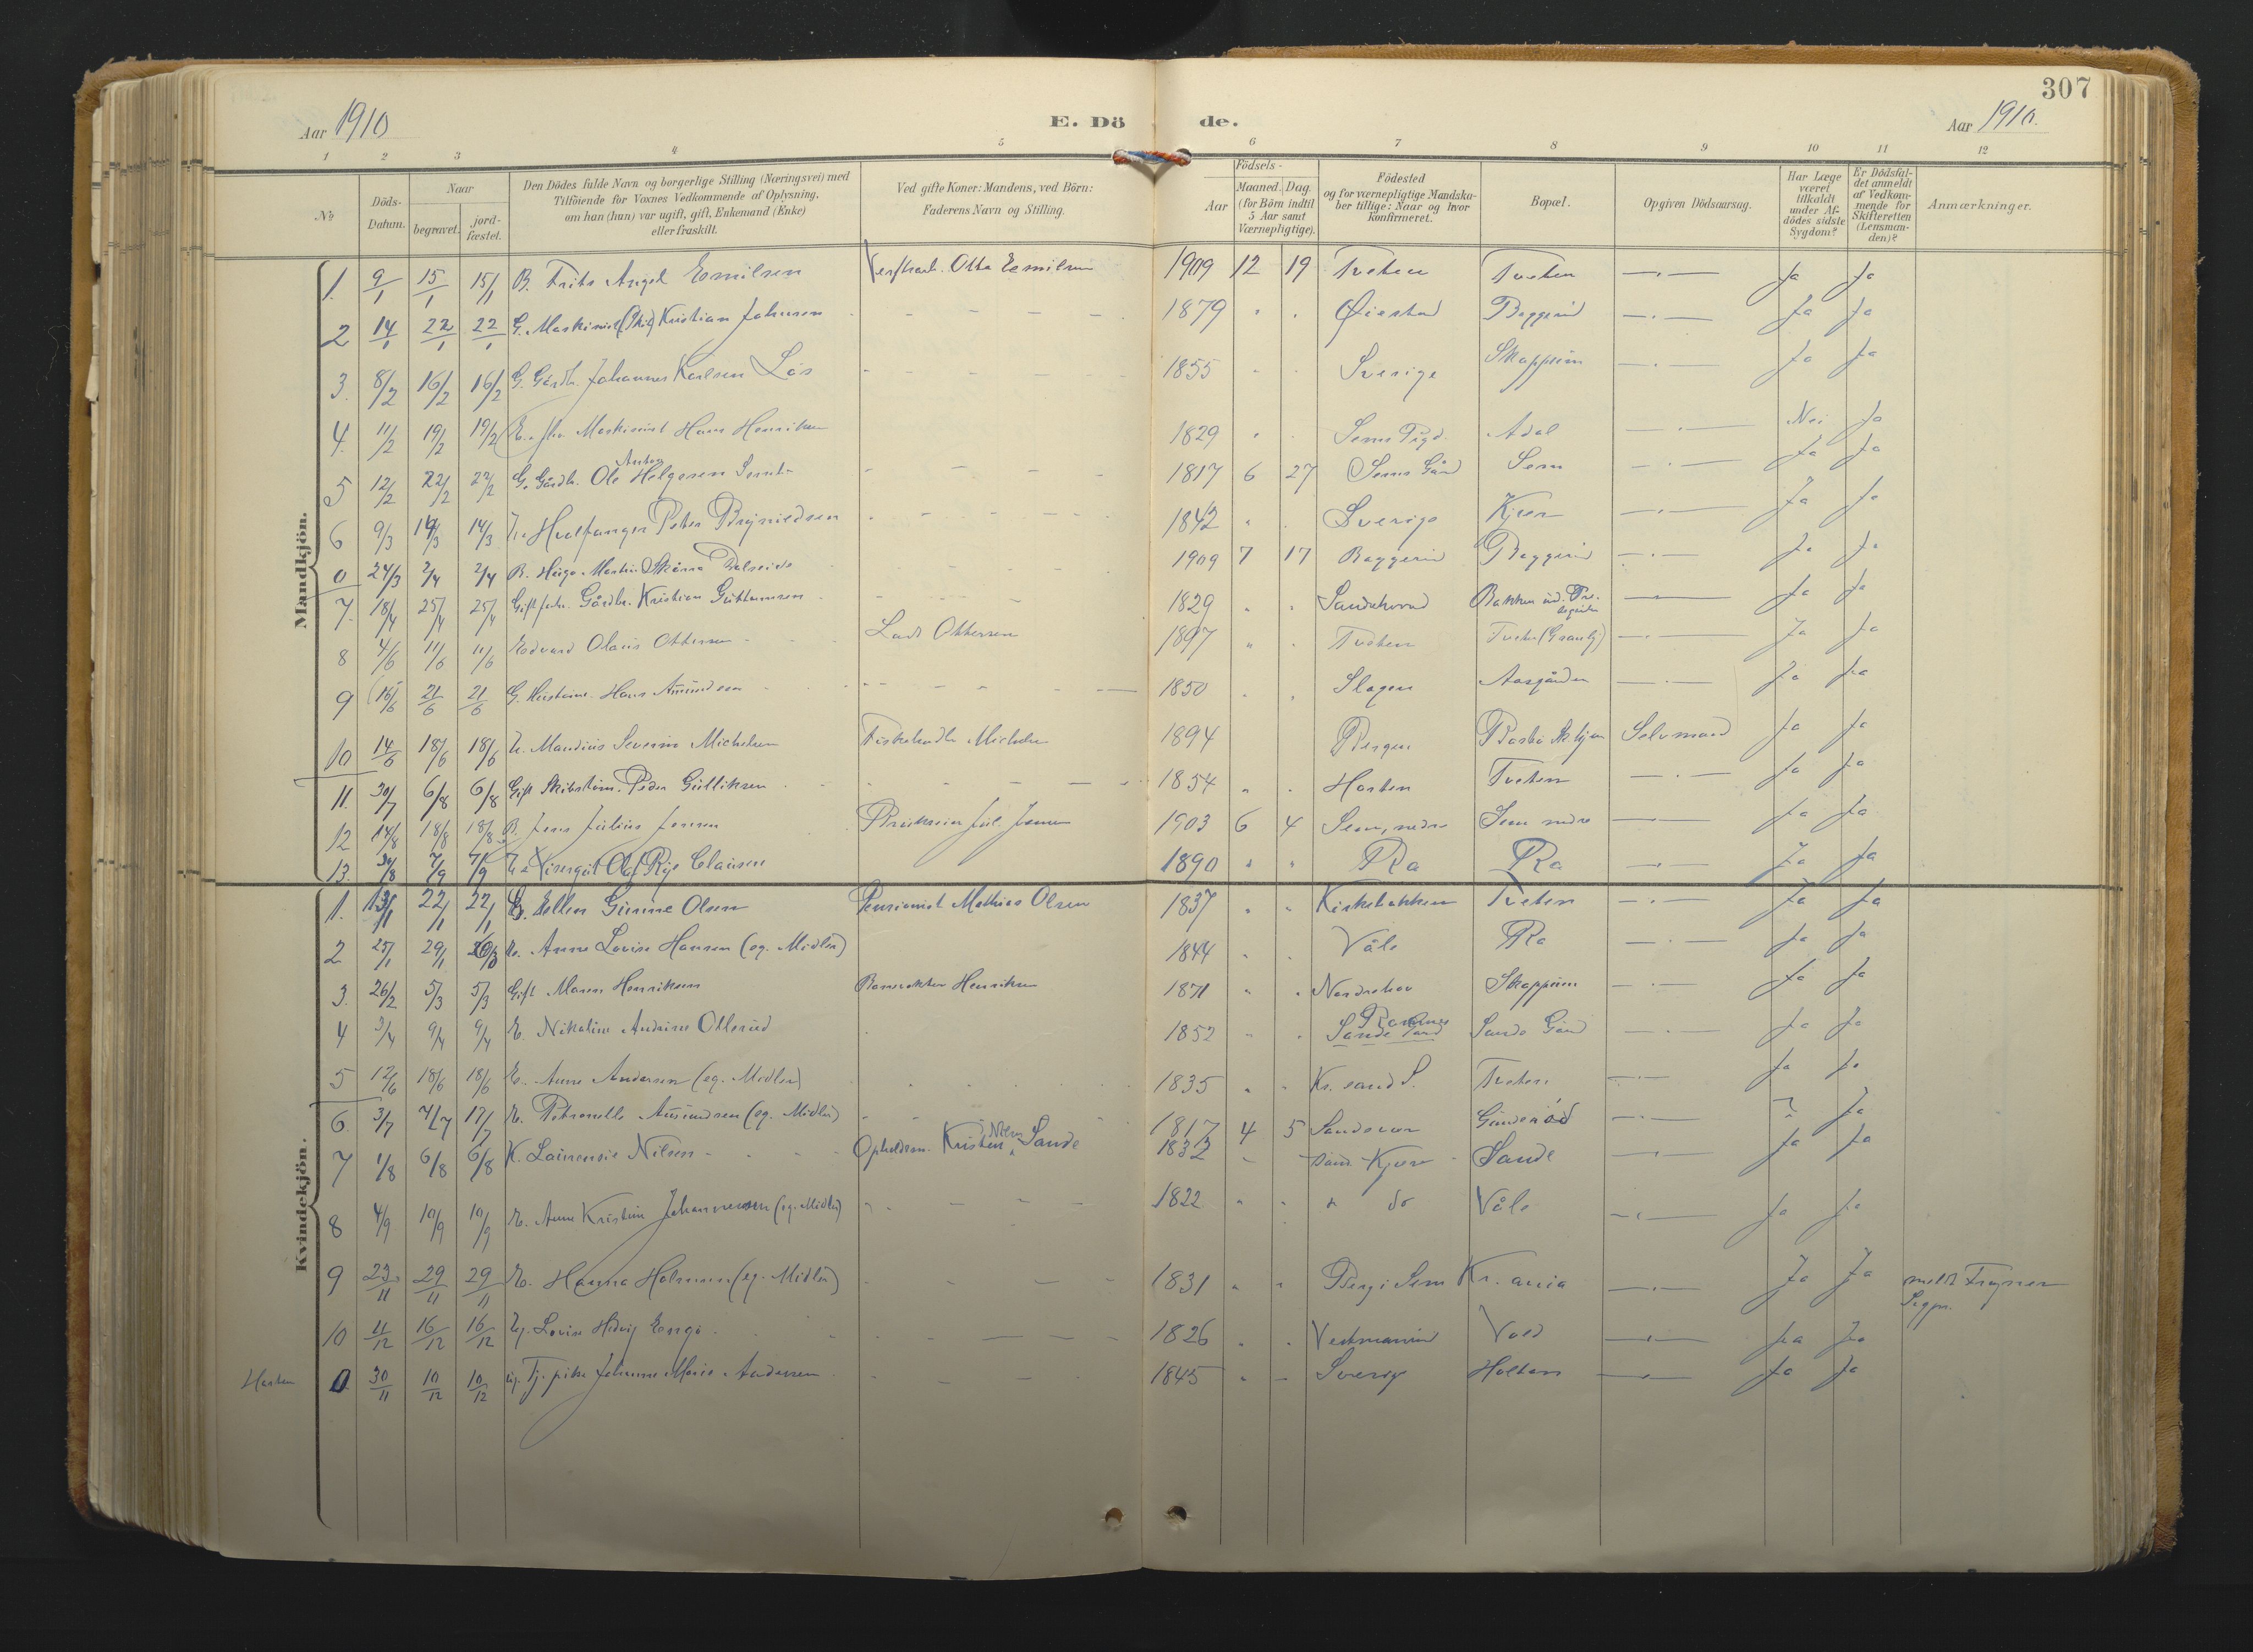 307
Aar 1910 E. Dö de. Aar 1910.
1 2 3 4 5 6 7 8 9 10 11 12
№ Döds-Datum. Naar begravet. jord-fæstet. Den Dödes fulde Navn og borgerlige Stilling (Næringsvei) med Tilföiende for Voxnes Vedkommende af Oplysning, om han (hun) var ugift, gift, Enkemand (Enke) eller fraskilt. Ved gifte Koner: Mandens, ved Börn: Faderens Navn og Stilling. Födsels- Aar Maaned. Dag. (for Börn indtil 5 Aar samt Værnepligtige). Födested og for værnepligtige Mandskaber tillige: Naar og hvor Konfirmeret. Bopæl. Opgiven Dödsaarsag. Har Læge været tilkaldt under Afdödes sidste Sygdom? Er Dödsfaldet anmeldt af Vedkommende for Skifteretten (Lensmanden)? Anmærkninger.
Mandkjön.
1. 9/1 15/1 15/1 B. Frits Angel Emilsen Otto Emilsen 1909 12 19 Tveten Tveten —.— Ja Ja
2 14/1 22/1 22/1 G. Maskinist Kristian Johnsen 1879 " . Øiestad Baggerød —.— Ja Ja
3. 8/2 16/2 16/2 G. Gårdb. Johannes Karlsen Lös 1855 Sverige Skoppum —.— Ja Ja
4. 11/2 19/2 19/2 E. Maskinist Hans Henriksen 1829 " . Sems Adal —.— Nei Ja
5 12/2 22/2 22/2 G. Gårdb. Ole Anton Helgesen 1817 6 27 Sems Gård Sem —.— Ja Ja
6 9/3 14/3 14/3 Hvalfanger Peter Brynildsen 1842 " . Sverige Kjær —.— Ja Ja
0 24/3 2/4 2/4 B. Martin 1909 7 17 Baggerød Baggerød —.— Ja Ja
7. 18/4 25/4 25/4 Gift Gårdbr. Kristian Guttormsen 1829 " " Sandeherred Bakken — Ja Ja
8 4/6 11/6 11/6 Edvard Olaus Ottersen Lars Ottersen 1897 " . Tveten Tveten —.— Ja Ja
9 16/6 21/6 21/6 G. Hans Amundsen 1850 . . Slagen Aasgården —.— Ja Ja
10 14/6 18/6 18/6 U. Severin Michelsen Fiskehndlr. Michelsen 1894 Bergen Selvmord Ja Ja
11. 30/7 6/8 6/8 Gift Skibstöm. Peder Gulliksen 1854 " . Horten Tveten —.— Ja Ja
12 14/8 18/8 18/8 B. Jens Julius Jensen Jul. Jensen 1903 6 4 Sem, nedre Sem nedre —.— Ja Ja
13. 30/8 7/9 7/9 Visergut Olaf Rye Clausen 1890 " " Ra Ra —.— Ja Ja
Kvindekjön.
1. 13/1 22/1 22/1 G. Ellen Gurine Olsen Pensionist Mathias Olsen 1837 " " Kirkebakken Tveten —.— Ja Ja
2 25/1 29/1 E. Anne Lovise Hansen (eg. Midler) 1844 " . Våle Ra —.— Ja Ja
3. 26/2 5/3 5/3 Gift Maren Henriksen Banevokter Henriksen 1871 " . Norderhov Skoppum —.— Ja Ja
4 3/4 9/4 9/4 E. Nikoline Andrine Ollerud 1852 " . Ramnes Sande Gård —.— Ja Ja
5 12/6 18/6 18/6 E. Anne Andersen (eg. Midler) 1835 " " Kr.sand S. Tveten —.— Ja Ja
6 3/7 7/7 17/7 E. Petronelle Amundsen (eg. Midler) 1817 4 5 —.— ? Ja
7 1/8 6/8 6/8 K. Laurensie Nilsen Opholdsm. Kristen Nilsen Sande Kjær Sande —.— Ja Ja
8 4/9 10/9 10/9 E. Anne Kristine Johannessen (eg. Midler) 1822 " " " do Våle —.— Ja Ja
9 23/11 29/11 29/11 E. Hanna Holmsen (eg. Midler) 1831 " " Berg i Sem Kr.ania —.— Ja Ja
10 11/12 16/12 16/12 Ug. Lovise Hedvig Engø 1826 . . Vold —.— Ja Ja
Horten 0 30/11 10/12 10/12 Ug. Tj.pike Johanne Marie Andersen 1845 " - Sverige Holtan —.— Ja Ja